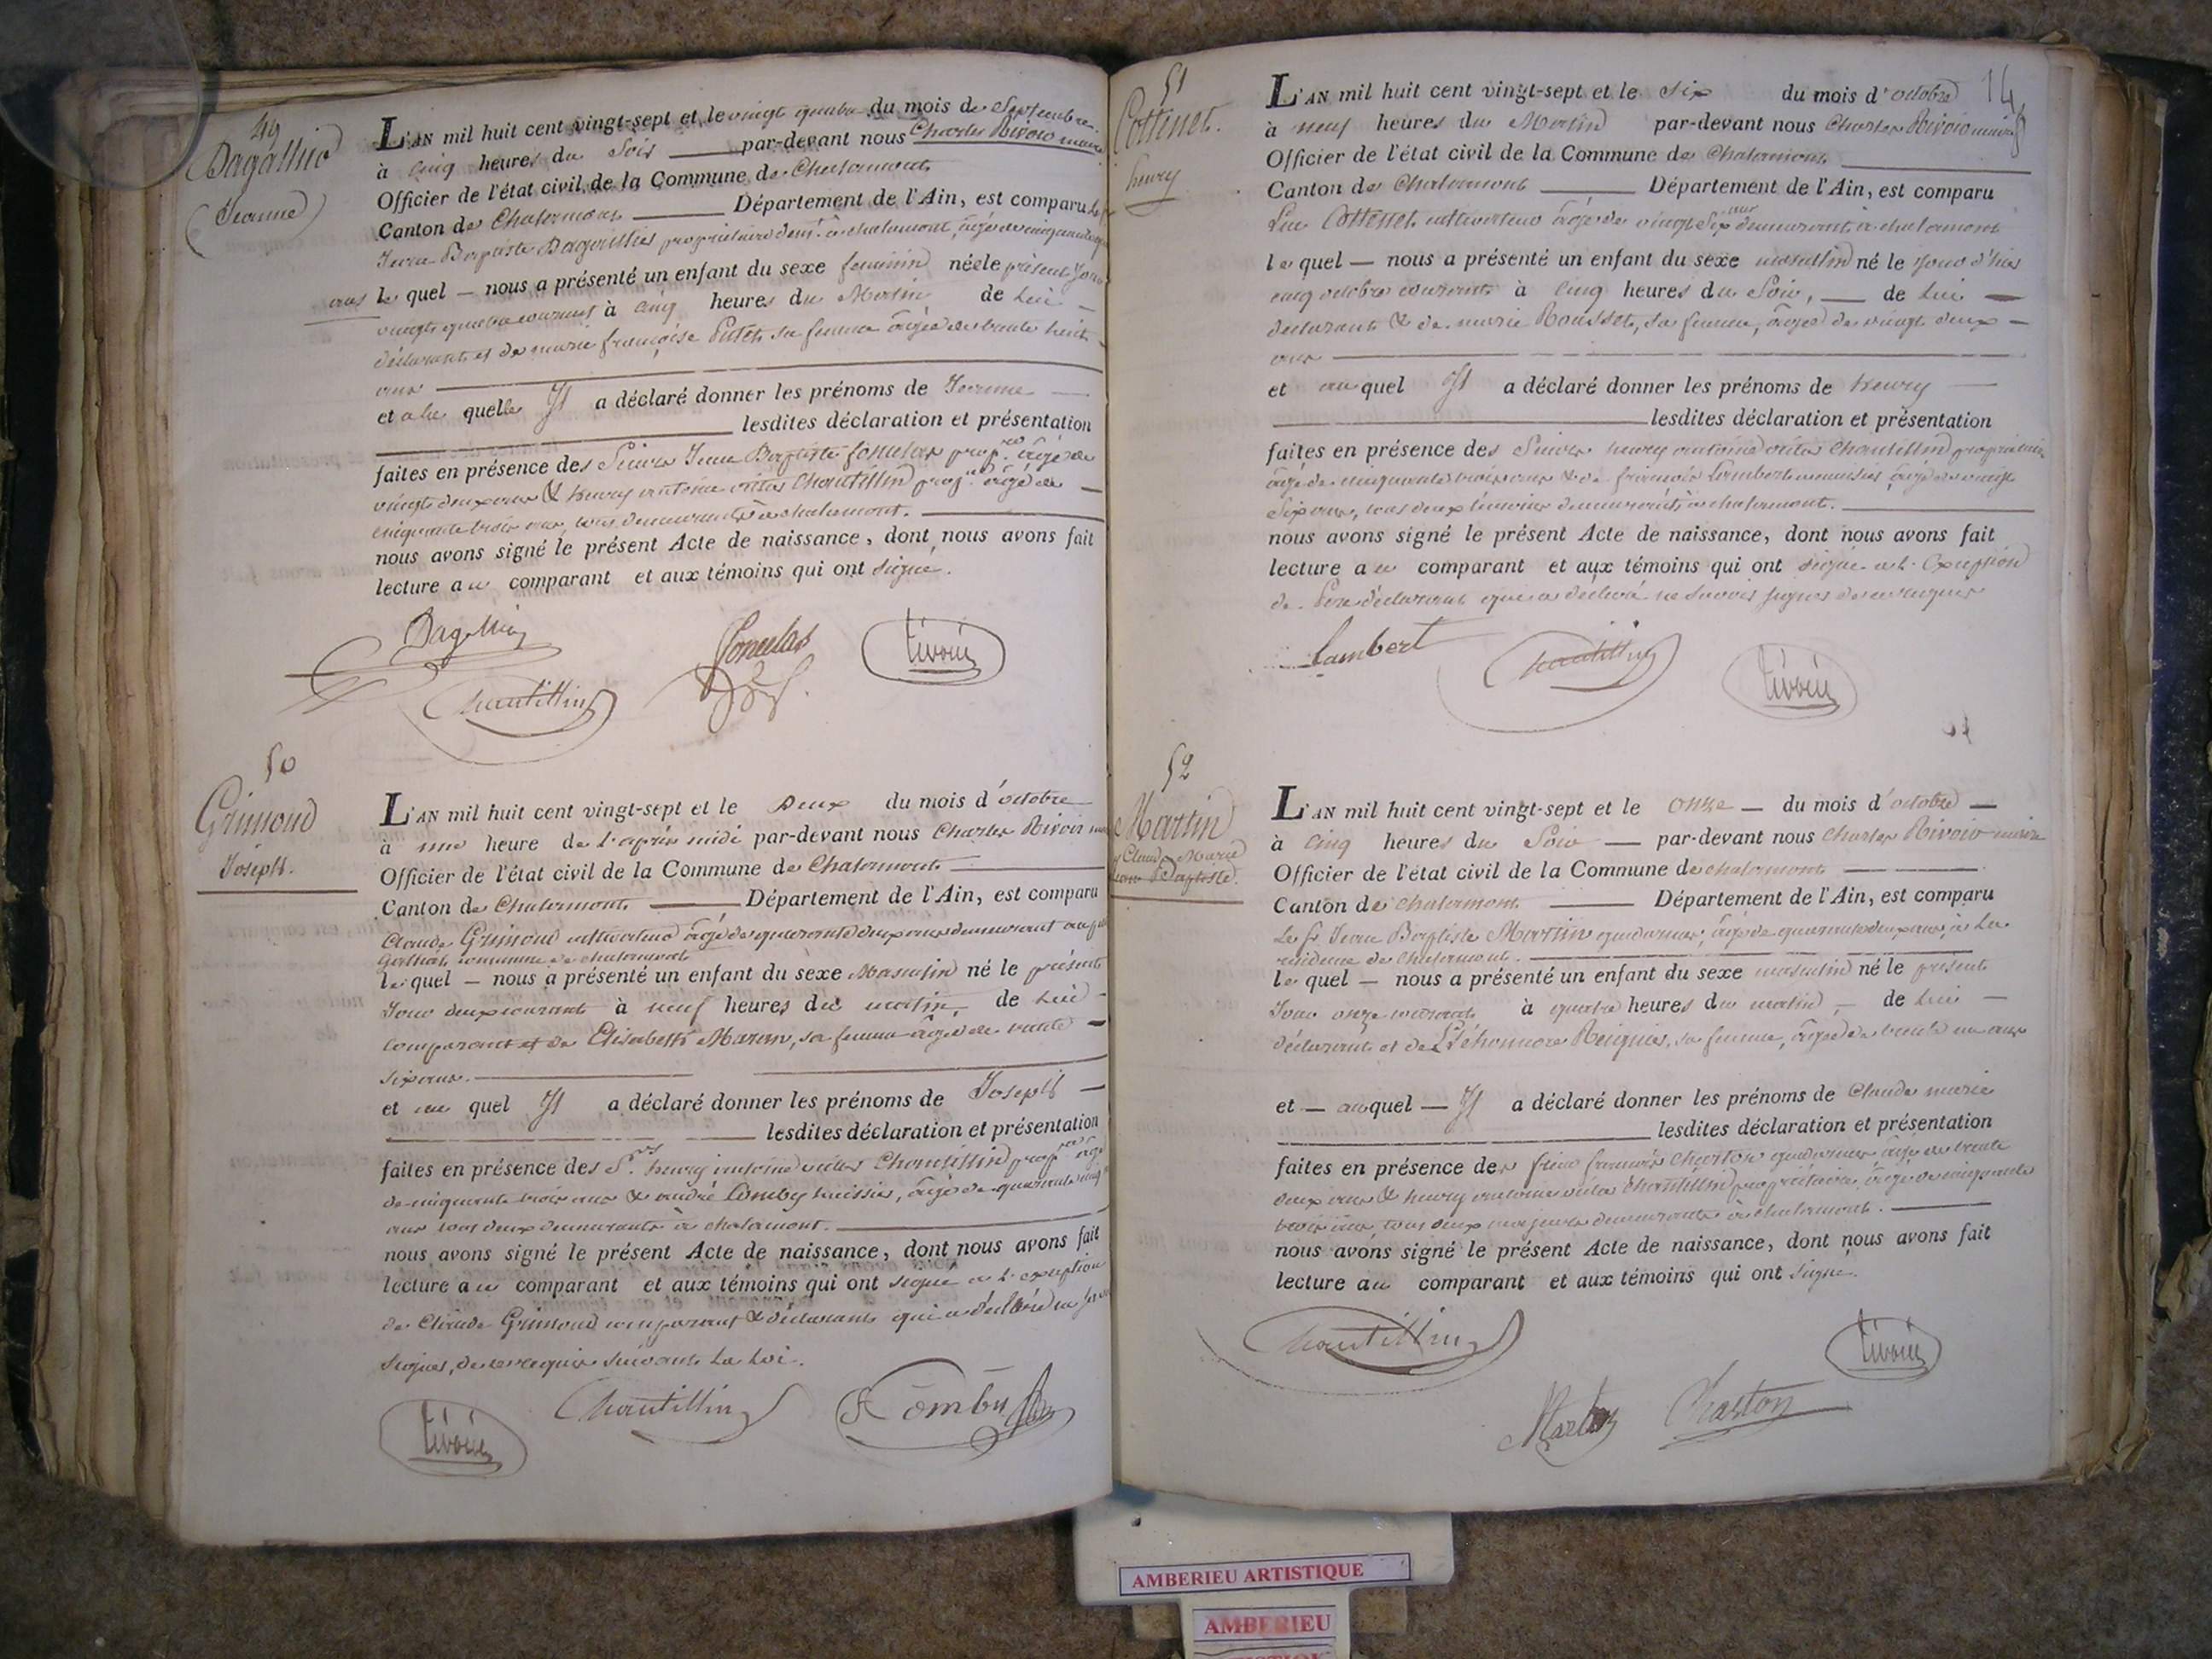 49
Dagallier
(Jeanne)
L'AN mil huit cent vingt-sept et le vingt quatre du mois de Septembre
à cinq heures du Soir par-devant nous Charles Rivoir maire
Officier de l'état civil de la Commune de Chalamont
Canton de Chalamont Département de l'Ain, est comparu
Jean Baptiste Dagallier propriétaire à chalamont, âgé de
ans le quel nous a présenté un enfant du sexe feminin née le présent jour
vingt quatre courant à cinq heures du Matin de Lui
déclarant et de marie françoise sa femme âgée de trente huit
ans
et a la quelle Il a déclaré donner les prénoms de Jeanne
lesdites déclaration et présentation
faites en présence des Sieurs Jean Baptiste prop.re âgé de
vingt deux ans & henry antoine Chantillin prop.re âgé de
cinquante trois ans, tous demeurants à chalamont.
nous avons signé le présent Acte de naissance, dont nous avons fait
lecture au comparant et aux témoins qui ont signé.
Dagallier
Chantillin
Rivoir
50
Grimond
Joseph.
L'AN mil huit cent vingt-sept et le Deux du mois d'octobre
à une heure de l'après midi par-devant nous Charles Rivoir
Officier de l'état civil de la Commune de Chalamont
Canton de Chalamont Département de l'Ain, est comparu
Claude Grimond cultivateur âgé de quarante deux ans demeurant au
commune de chalamont
le quel nous a présenté un enfant du sexe Masculin né le présent
Jour deux courant à neuf heures du matin, de Lui
comparant et de Elisabeth sa femme âgée de trente
six ans.
et au quel Il a déclaré donner les prénoms de Joseph
lesdites déclaration et présentation
faites en présence des S.rs henry antoine Chantillin prop.re âgé
de cinquante trois ans & andré huissier, âgé de quarante
ans tous deux demeurants à chalamont.
nous avons signé le présent Acte de naissance, dont nous avons fait
lecture au comparant et aux témoins qui ont signé à l'exception
de Claude Grimond comparant & déclarant qui a déclaré ne
signer, de ce requis suivant La Loi.
Rivoir
Chantillin
51
Cottenet.
henry
L'AN mil huit cent vingt-sept et le six du mois d'octobre
à neuf heures du Matin par-devant nous Charles Rivoir maire
Officier de l'état civil de la Commune de Chalamont
Canton de Chalamont Département de l'Ain, est comparu
Luc Cottenet cultivateur âgé de vingt six ans demeurant à chalamont
le quel nous a présenté un enfant du sexe masculin né le jour d'hier
cinq octobre courant à cinq heures du Soir, de Lui
déclarant & de marie Rousset, sa femme, âgée de vingt deux
ans
et au quel Il a déclaré donner les prénoms de henry
lesdites déclaration et présentation
faites en présence des Sieurs henry antoine Chantillin propriétaire
âgé de cinquante trois ans & de françois Lambert menuisier âgé de vingt
six ans, tous deux témoins demeurants à chalamont.
nous avons signé le présent Acte de naissance, dont nous avons fait
lecture au comparant et aux témoins qui ont signé à l'Exception
du Père déclarant qui a déclaré ne savoir signer de ce requis
Lambert
Chantillin
Rivoir
52
Martin
Claude Marie
Jean Baptiste.
L'AN mil huit cent vingt-sept et le onze du mois d'octobre
à cinq heures du Soir par-devant nous Charles Rivoir maire
Officier de l'état civil de la Commune de chalamont
Canton de chalamont Département de l'Ain, est comparu
Le Sr Jean Baptiste Martin gendarme, âgé de quarante deux ans, à La
résidence de chalamont.
le quel nous a présenté un enfant du sexe masculin né le présent
Jour onze courant à quatre heures du matin, de Lui
déclarant et de sa femme, âgée de trente un ans
et au quel Il a déclaré donner les prénoms de Claude marie
lesdites déclaration et présentation
faites en présence de françois Charton gendarme âgé de trente
deux ans & henry antoine Chantillin propriétaire, âgé de cinquante
trois ans, tous deux majeurs demeurants à chalamont.
nous avons signé le présent Acte de naissance, dont nous avons fait
lecture au comparant et aux témoins qui ont signé.
Chantillin
Rivoir
Martin
Charton
AMBERIEU ARTISTIQUE
AMBERIEU